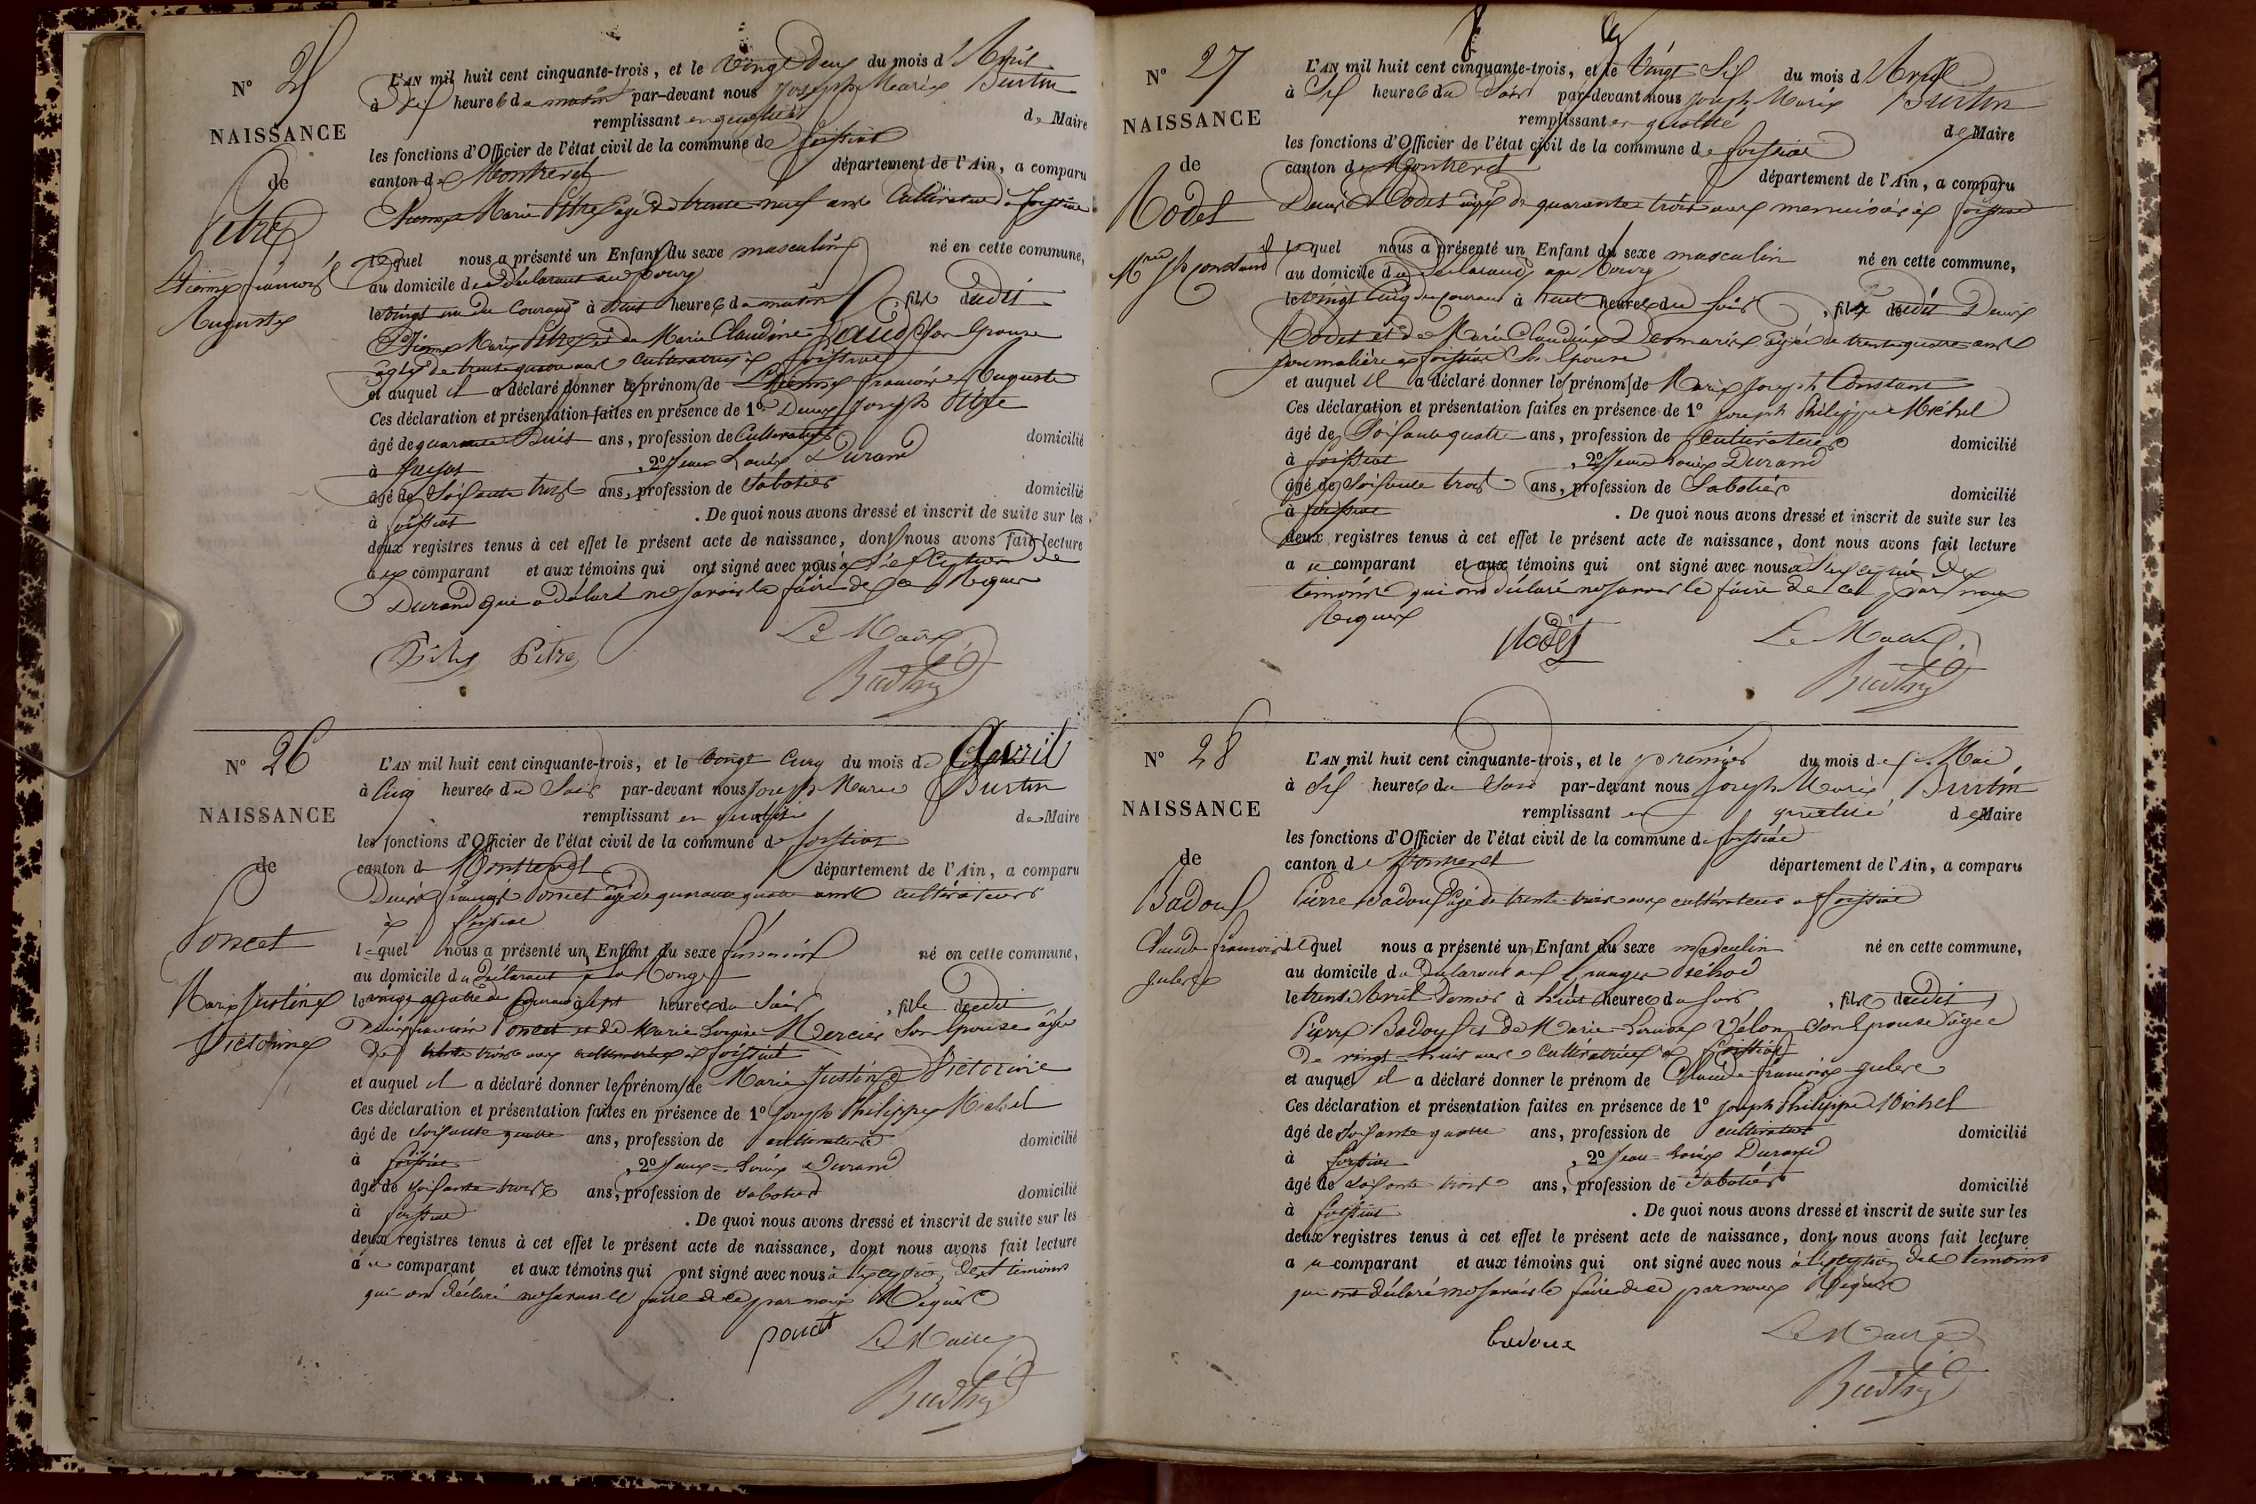 N° 25
NAISSANCE
de
Pitre
Etienne françois
Auguste
L'AN mil huit cent cinquante-trois, et le vingt Deux du mois d'Avril
à dix heures du matin par-devant nous Joseph Marie Burtin
remplissant en qualité de Maire
les fonctions d'Officier de l'état civil de la commune de foissiat
canton de Montrevel département de l'Ain, a comparu
Marie Pitre âgé de trente neuf ans Cultivateur à foissiat
lequel nous a présenté un Enfant du sexe masculin né en cette commune,
au domicile du déclarant au bourg
le vingt un du Courant à heures du matin, fils dudit
Marie Pitre et de Marie Claudine son Epouse
âgée de trente quatre ans cultivatrice à foissiat
et auquel il a déclaré donner les prénoms de Etienne francois Auguste
Ces déclaration et présentation faites en présence de 1° Denis Joseph Pitre
âgé de quarante huit ans, profession de Cultivateur domicilié
à
, 2° Jean Louis Durand
âgé de Soixante trois ans, profession de Sabotier domicilié
à foissiat . De quoi nous avons dressé et inscrit de suite sur les
deux registres tenus à cet effet le présent acte de naissance, dont nous avons fait lecture
au comparant et aux témoins qui ont signé avec nous à l'exception de
Durand qui a déclaré ne savoir le faire de ce Requis
Pitre Pitre
Le Maire
Burtin
N° 26
NAISSANCE
de
Poncet
Marie Justine
Victorine
L'AN mil huit cent cinquante-trois, et le vingt Cinq du mois d'Avril
à Cinq heures du Soir par-devant nous Joseph Marie Burtin
remplissant en qualité de Maire
les fonctions d'Officier de l'état civil de la commune de foissiat
canton de Montrevel département de l'Ain, a comparu
Denis françois Poncet âgé de quarante quatre ans cultivateur
à foissiat
lequel nous a présenté un Enfant du sexe féminin né en cette commune,
au domicile du déclarant à la
le vingt quatre du Courant à heures du Soir, fille dudit
Denis françois Poncet et de Marie Mercier Son Epouse âgée
de trente trois ans cultivatrice à foissiat
et auquel il a déclaré donner les prénoms de Marie Justine Victorine
Ces déclaration et présentation faites en présence de 1° Joseph Philippe Michel
âgé de soixante quatre ans, profession de cultivateur domicilié
à foissiat , 2° Jean=Louis Durand
âgé de soixante trois ans, profession de sabotier domicilié
à foissiat . De quoi nous avons dressé et inscrit de suite sur les
deux registres tenus à cet effet le présent acte de naissance, dont nous avons fait lecture
au comparant et aux témoins qui ont signé avec nous à l'exception des témoins
qui ont déclaré ne savoir le faire de ce par nous Requis
poncet
Le Maire
Burtin
N° 27
NAISSANCE
de
Rodet
Mrie Jph Constand
L'AN mil huit cent cinquante-trois, et le Vingt Six du mois d'Avril
à Six heures du Soir par-devant nous Joseph Marie Burtin
remplissant en qualité de Maire
les fonctions d'Officier de l'état civil de la commune de foissiat
canton de Montrevel département de l'Ain, a comparu
Denis Rodet âgé de quarante trois ans menuisier à foissiat
lequel nous a présenté un Enfant du sexe masculin né en cette commune,
au domicile du déclarant au Bourg
le vingt Cinq du Courant à huit heures du Soir, fils dudit Denis
Rodet et de Marie Claudine Desmaris âgée de trente quatre ans
Journalière à foissiat Son Epouse
et auquel il a déclaré donner les prénoms de Marie Joseph Constant
Ces déclaration et présentation faites en présence de 1° Joseph Philippe Michel
âgé de Soixante quatre ans, profession de cultivateur domicilié
à foissiat , 2° Jean Louis Durand
âgé de Soixante trois ans, profession de Sabotier domicilié
à foissiat . De quoi nous avons dressé et inscrit de suite sur les
deux registres tenus à cet effet le présent acte de naissance, dont nous avons fait lecture
au comparant et aux témoins qui ont signé avec nous à l'exception des
témoins qui ont déclaré ne savoir le faire de ce par nous
Requis
Rodet
Le Maire
Burtin
N° 28
NAISSANCE
de
Badoux
Claude françois
Jules
L'AN mil huit cent cinquante-trois, et le premier du mois de Mai
à Six heures du Soir par-devant nous Joseph Marie Burtin
remplissant en qualité de Maire
les fonctions d'Officier de l'état civil de la commune de foissiat
canton de Montrevel département de l'Ain, a comparu
Pierre Badoux âgé de trente trois ans cultivateur à foissiat
lequel nous a présenté un Enfant du sexe masculin né en cette commune,
au domicile du Déclarant aux granges
le trente Avril dernier à huit heures du soir, fils dudit
Pierre Badoux et de Marie=Louise Vélon son Epouse âgée
de vingt=huit ans cultivatrice à foissiat
et auquel il a déclaré donner le prénom de Claude françois Jules
Ces déclaration et présentation faites en présence de 1° Joseph Philippe Michel
âgé de Soixante quatre ans, profession de cultivateur domicilié
à foissiat , 2° Jean=Louis Durand
âgé de soixante trois ans, profession de Sabotier domicilié
à foissiat . De quoi nous avons dressé et inscrit de suite sur les
deux registres tenus à cet effet le présent acte de naissance, dont nous avons fait lecture
au comparant et aux témoins qui ont signé avec nous à l'exception des témoins
qui ont déclaré ne savoir le faire de ce par nous Requis
badoux
Le Maire
Burtin